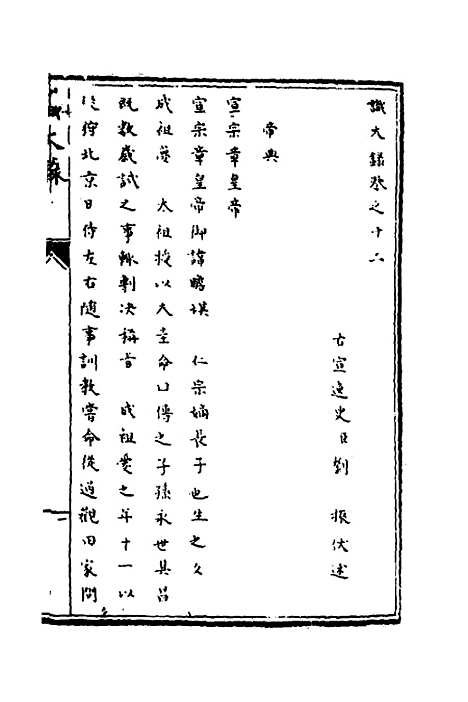 識大錄卷之十二
古宣逸史臣劉 振伏述
帝典
宣宗章皇帝
宣宗章皇帝御諱瞻基 仁宗嫡長子也生之夕
成祖夢 太祖授以大圭命曰傳之子孫永世其昌
既數歲試之事輒剖決稱旨 成祖愛之年十一以
從狩北京日侍左右隨事訓教嘗命從過觀田家問
大錄